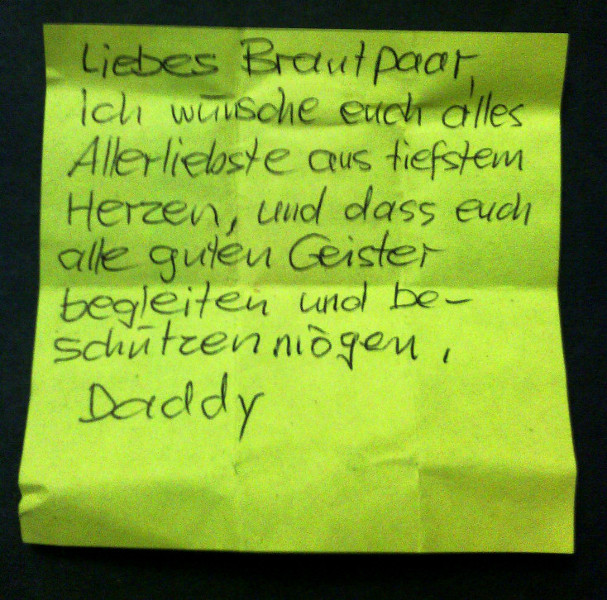 Liebes Brautpaar,
Ich wünsche euch alles
Allerliebste aus tiefstem
Herzen, und dass euch
alle guten Geister
begleiten und be-
schützen mögen,
Daddy